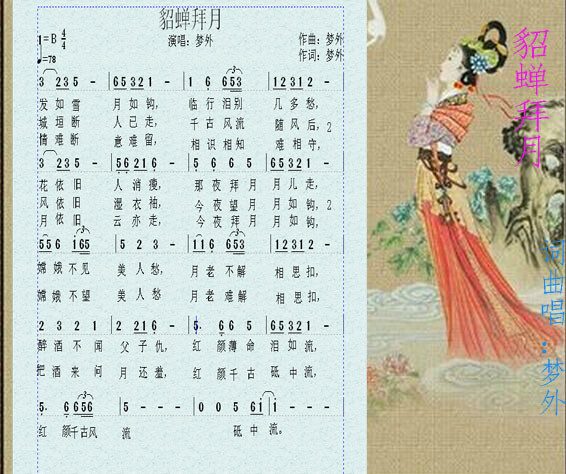 貂蝉拜月
1=B 4/4
♩=78
演唱：梦外
作曲：梦外
作词：梦外
3 235 - | 65321 - | 1 6 653 | 12312 - |
发如雪 月如钩, 临行泪别 几多愁,
城垣断 人已走, 千古风流 随风后, 2
情难断 意难留, 相识相知 难相守,
3 235 - | 56216 - | 5 6 6 5 | 65321 - |
花依旧 人消瘦, 那夜拜月 月儿走,
风依旧 湿衣袖, 今夜望月 月如钩, 2
月依旧 云亦走, 今夜拜月 月如钩,
556 165 | 5 2 3 - | 116 653 | 12312 - |
嫦娥不见 美人愁, 月老不解 相思扣,
嫦娥不望 美人愁, 月老难解 相思扣,
2 3 2 1 | 2 216 - | 5. 66 5 | 65321 - |
醉酒不闻 父子仇, 红颜薄命 泪如流,
把酒来问 月还羞, 红颜千古 砥中流,
5. 6 656 | 5 - - - | 0 0 5 61 | 1 - - - |
红 颜千古风 流 砥中流。
貂蝉拜月
词曲唱：梦外